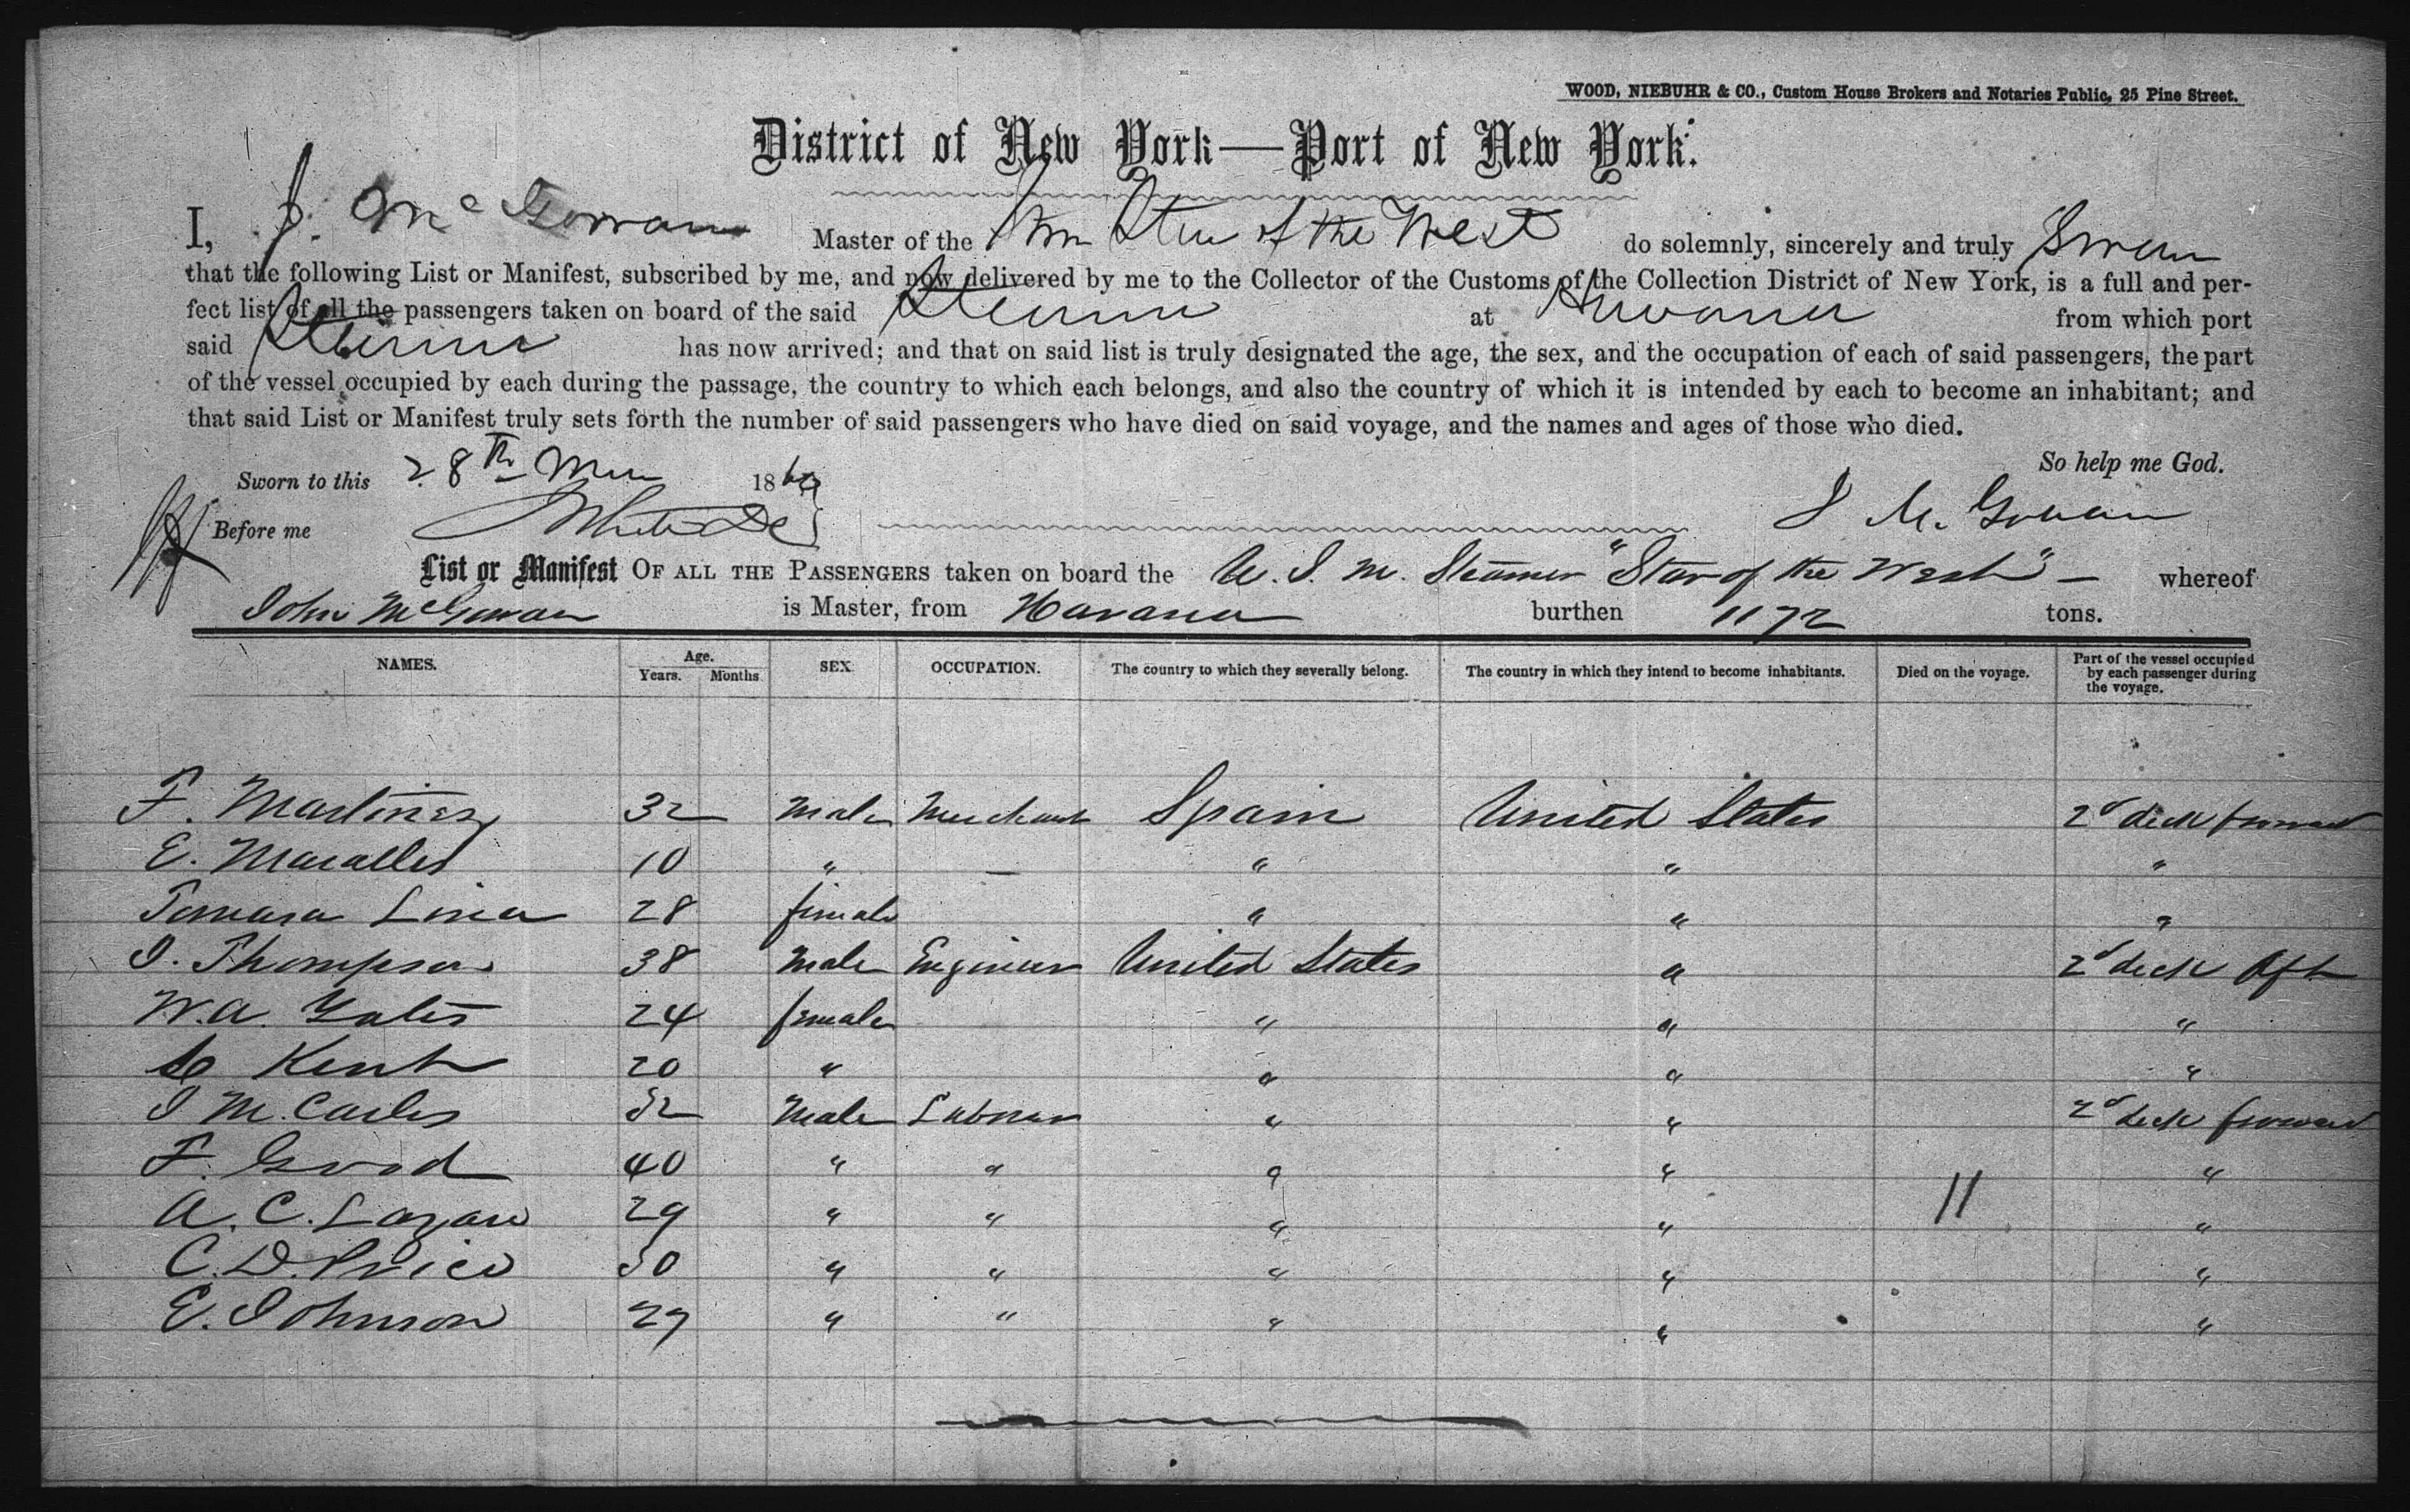 WOOD, NIEBUHR & CO., Custom House Brokers and Notaries Public, 25 Pine Street.
District of New York—Port of New York.
I, J. McGowan Master of the Star of the West do solemnly, sincerely and truly Swear
that the following List or Manifest, subscribed by me, and now delivered by me to the Collector of the Customs of the Collection District of New York, is a full and per-
fect list of all the passengers taken on board of the said Steamer at Havana from which port
said Steamer has now arrived; and that on said list is truly designated the age, the sex, and the occupation of each of said passengers, the part
of the vessel occupied by each during the passage, the country to which each belongs, and also the country of which it is intended by each to become an inhabitant; and
that said List or Manifest truly sets forth the number of said passengers who have died on said voyage, and the names and ages of those who died.
So help me God.
Sworn to this 28th 186
J McGowan
Before me
List or Manifest OF ALL THE PASSENGERS taken on board the U. S. M. Steamer "Star of the West" — whereof
John McGowan is Master, from Havana burthen 1172 tons.
NAMES. Age. Years. Months SEX. OCCUPATION. The country to which they severally belong. The country in which they intend to become inhabitants. Died on the voyage. Part of the vessel occupied by each passenger during the voyage.
F. Martinez 32 Male Merchant Spain United States 2d deck forward
E. 10 " — " " "
Lina 28 female " " "
J. Thompson 38 Male Engineer United States " 2d deck Aft
W. A. Yates 24 female " " "
Kent 20 " " " "
J M. 32 Male Laborer " " 2d deck forward
F. Good 40 " " " " "
A. C. Lazare 29 " " " " 11 "
C. D. Price 30 " " " " "
E. Johnson 29 " " " " "